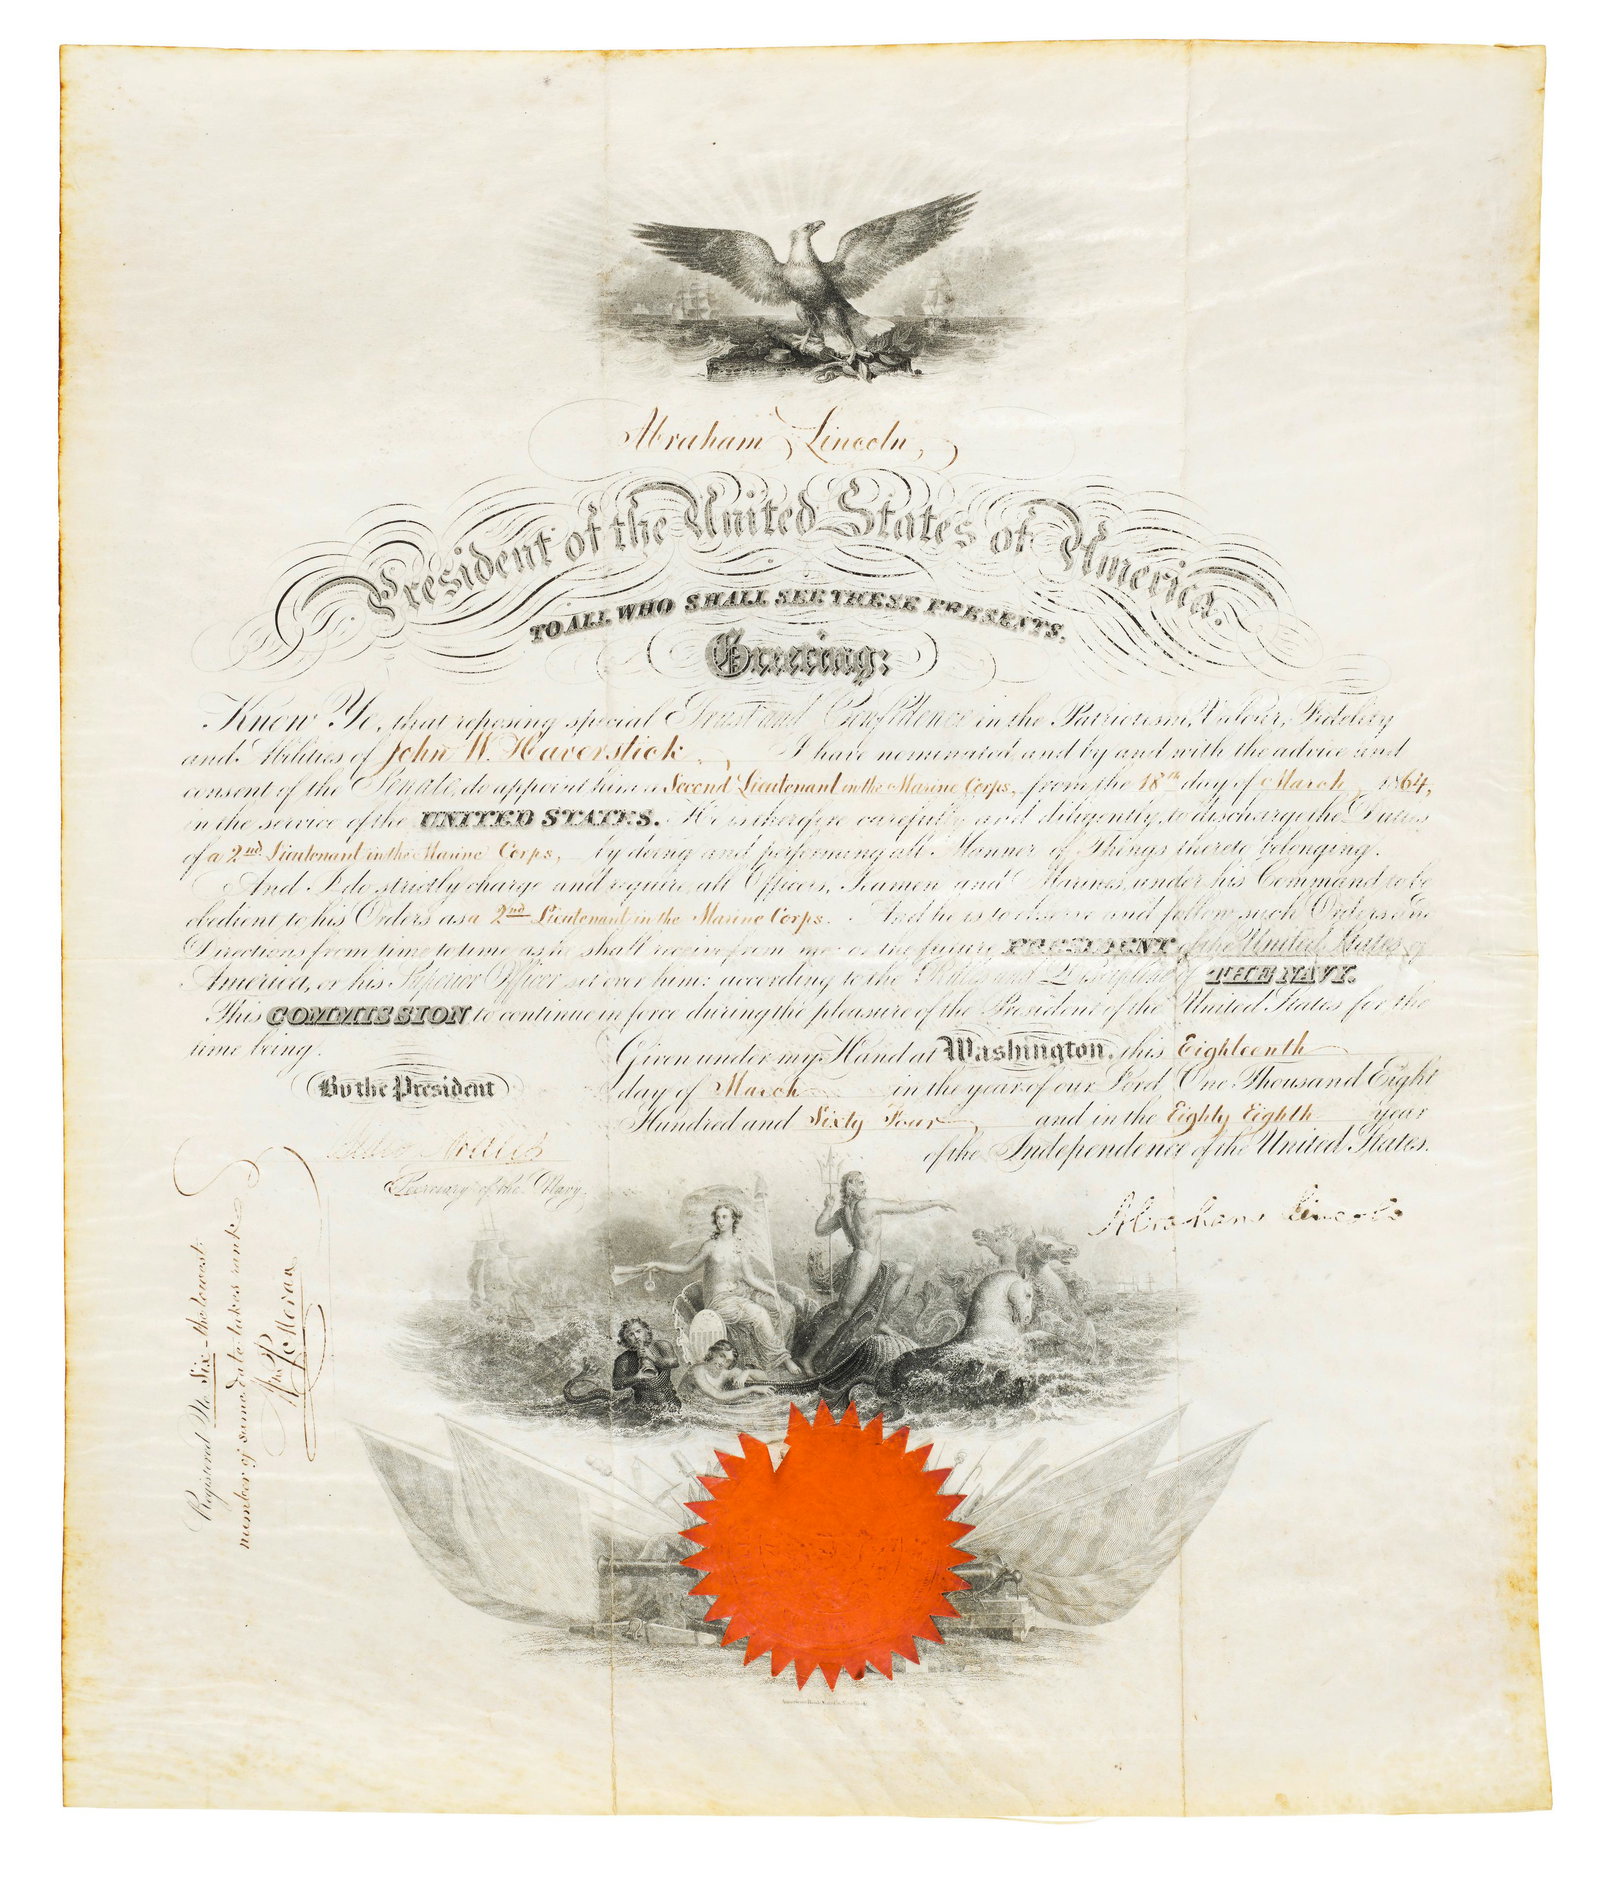 Abraham Lincoln,
President of the United States of America.
TO ALL WHO SHALL SEE THESE PRESENTS,
Greeting:
Know Ye, that reposing special Trust and Confidence in the Patriotism, Valour, Fidelity
and Abilities of John W. Haverstick, I have nominated and by and with the advice and
consent of the Senate, do appoint him a Second Lieutenant in the Marine Corps, from the 18th day of March, 1864,
in the service of the UNITED STATES. He is therefore carefully and diligently to discharge the Duties
of a 2nd Lieutenant in the Marine Corps, by doing and performing all Manner of Things thereto belonging.
And I do strictly charge and require all Officers, Seamen and Marines under his Command to be
obedient to his Orders as a 2nd Lieutenant in the Marine Corps. And he is to observe and follow such Orders and
Directions from time to time as he shall receive from me or the future PRESIDENT of the United States of
America, or his Superior Officer set over him: according to the Rules and Discipline of THE NAVY.
This COMMISSION to continue in force during the pleasure of the President of the United States for the
time being.
Given under my Hand at Washington, this Eighteenth
day of March in the year of our Lord One Thousand Eight
Hundred and Sixty Four, and in the Eighty Eighth year
of the Independence of the United States.
By the President
Abraham Lincoln
Secretary of the Navy.
Registered No. Six - the lowest
number of same date takes rank